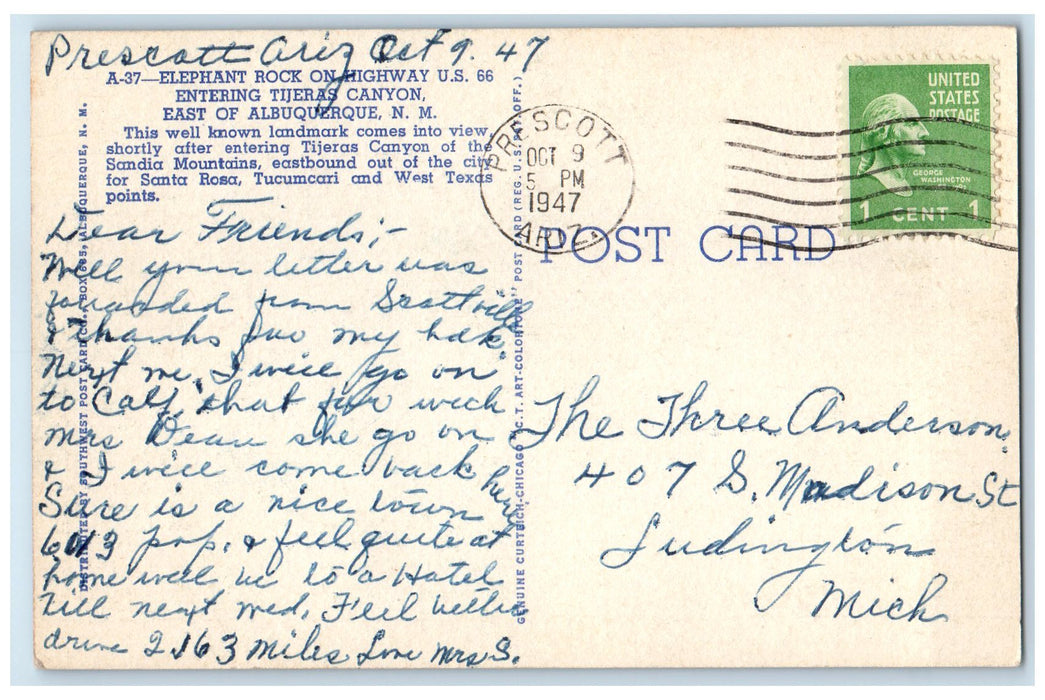 Prescott Ariz Oct 9. 47
A-37—ELEPHANT ROCK ON HIGHWAY U.S. 66
ENTERING TIJERAS CANYON,
EAST OF ALBUQUERQUE, N. M.
This well known landmark comes into view,
shortly after entering Tijeras Canyon of the
Sandia Mountains, eastbound out of the city
for Santa Rosa, Tucumcari and West Texas
points.
Dear Friends;-
Well your letter was
forwarded from Scottville
& thanks for my
Next me, I will go on
to Calf, that for week
Mrs Dean she go on
& I will come back here
Sure is a nice town
pop. & feel quite at
home will be to a Hotel
till next Wed, Feel better
drive 2163 miles Love Mrs S.
DISTRIBUTED BY SOUTHWEST POST CARD CO., BOX 685, ALBUQUERQUE, N. M.
GENUINE CURTEICH-CHICAGO "C.T. ART-COLORTONE" POST CARD (REG. U.S. PAT. OFF.)
PRESCOTT
OCT 9
5 PM
1947
ARIZ.
UNITED
STATES
POSTAGE
GEORGE
WASHINGTON
1 CENT 1
POST CARD
The Three Anderson,
407 S. Madison St
Ludington
Mich